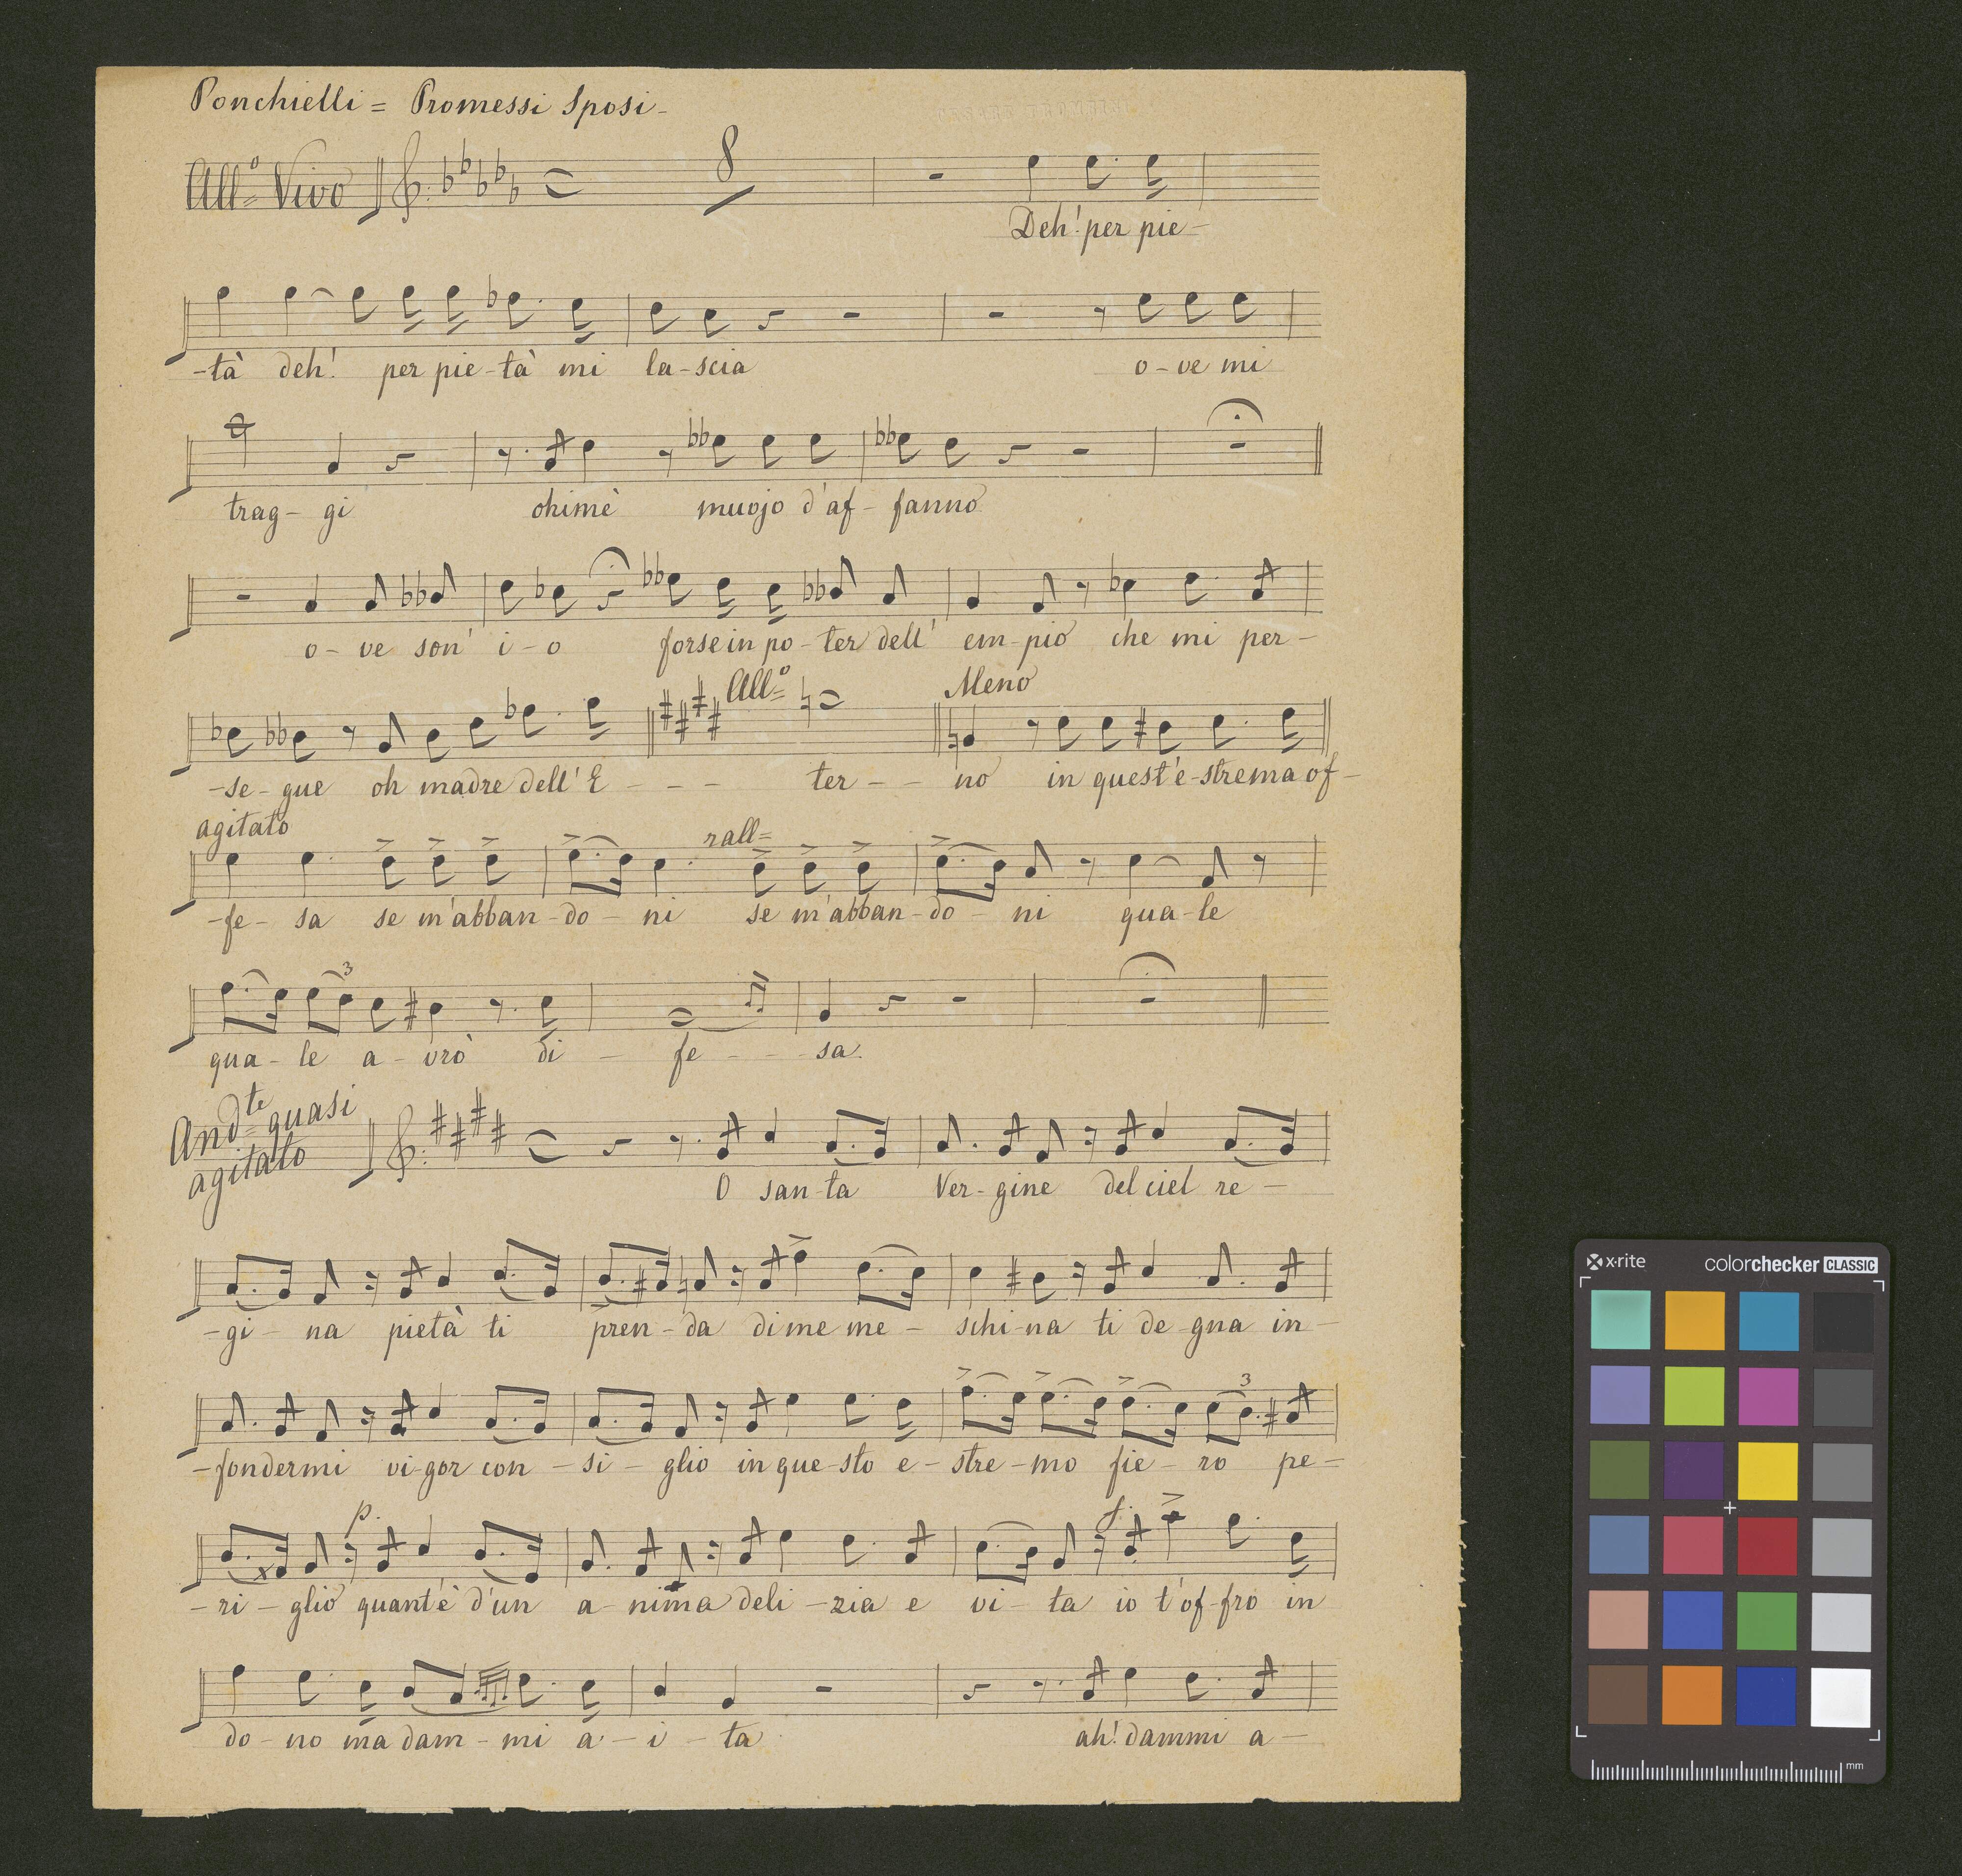 Ponchielli = Promessi Sposi -
All.º Vivo 8
Deh! per pie -
- tà deh! per pie - tà mi la - scia o - ve mi
trag - gi ohimè muojo d'af - fanno
o - ve son' i - o forse in po - ter dell' em - pio che mi per -
All.º Meno
- se - gue oh madre dell' E - - - ter - - no in quest'e - strema of -
agitato rall=
- fe - sa se m'abban - do - ni se m'abban - do - ni qua - le
3
qua - le a - vrò di - fe - - - sa.
And.te quasi
agitato
O san - ta Ver - gine del ciel re -
- gi - na pietà ti pren - da di me me - schi - na ti de - gna in -
3
- fondermi vi - gor con - si - glio in que - sto e - stre - mo fie - ro pe -
p. f.
- ri - glio quant'è d'un a - nima deli - zia e vi - ta io t'of - fro in
do - no ma dam - mi a - i - ta ah! dammi a -
x·rite colorchecker CLASSIC
mm